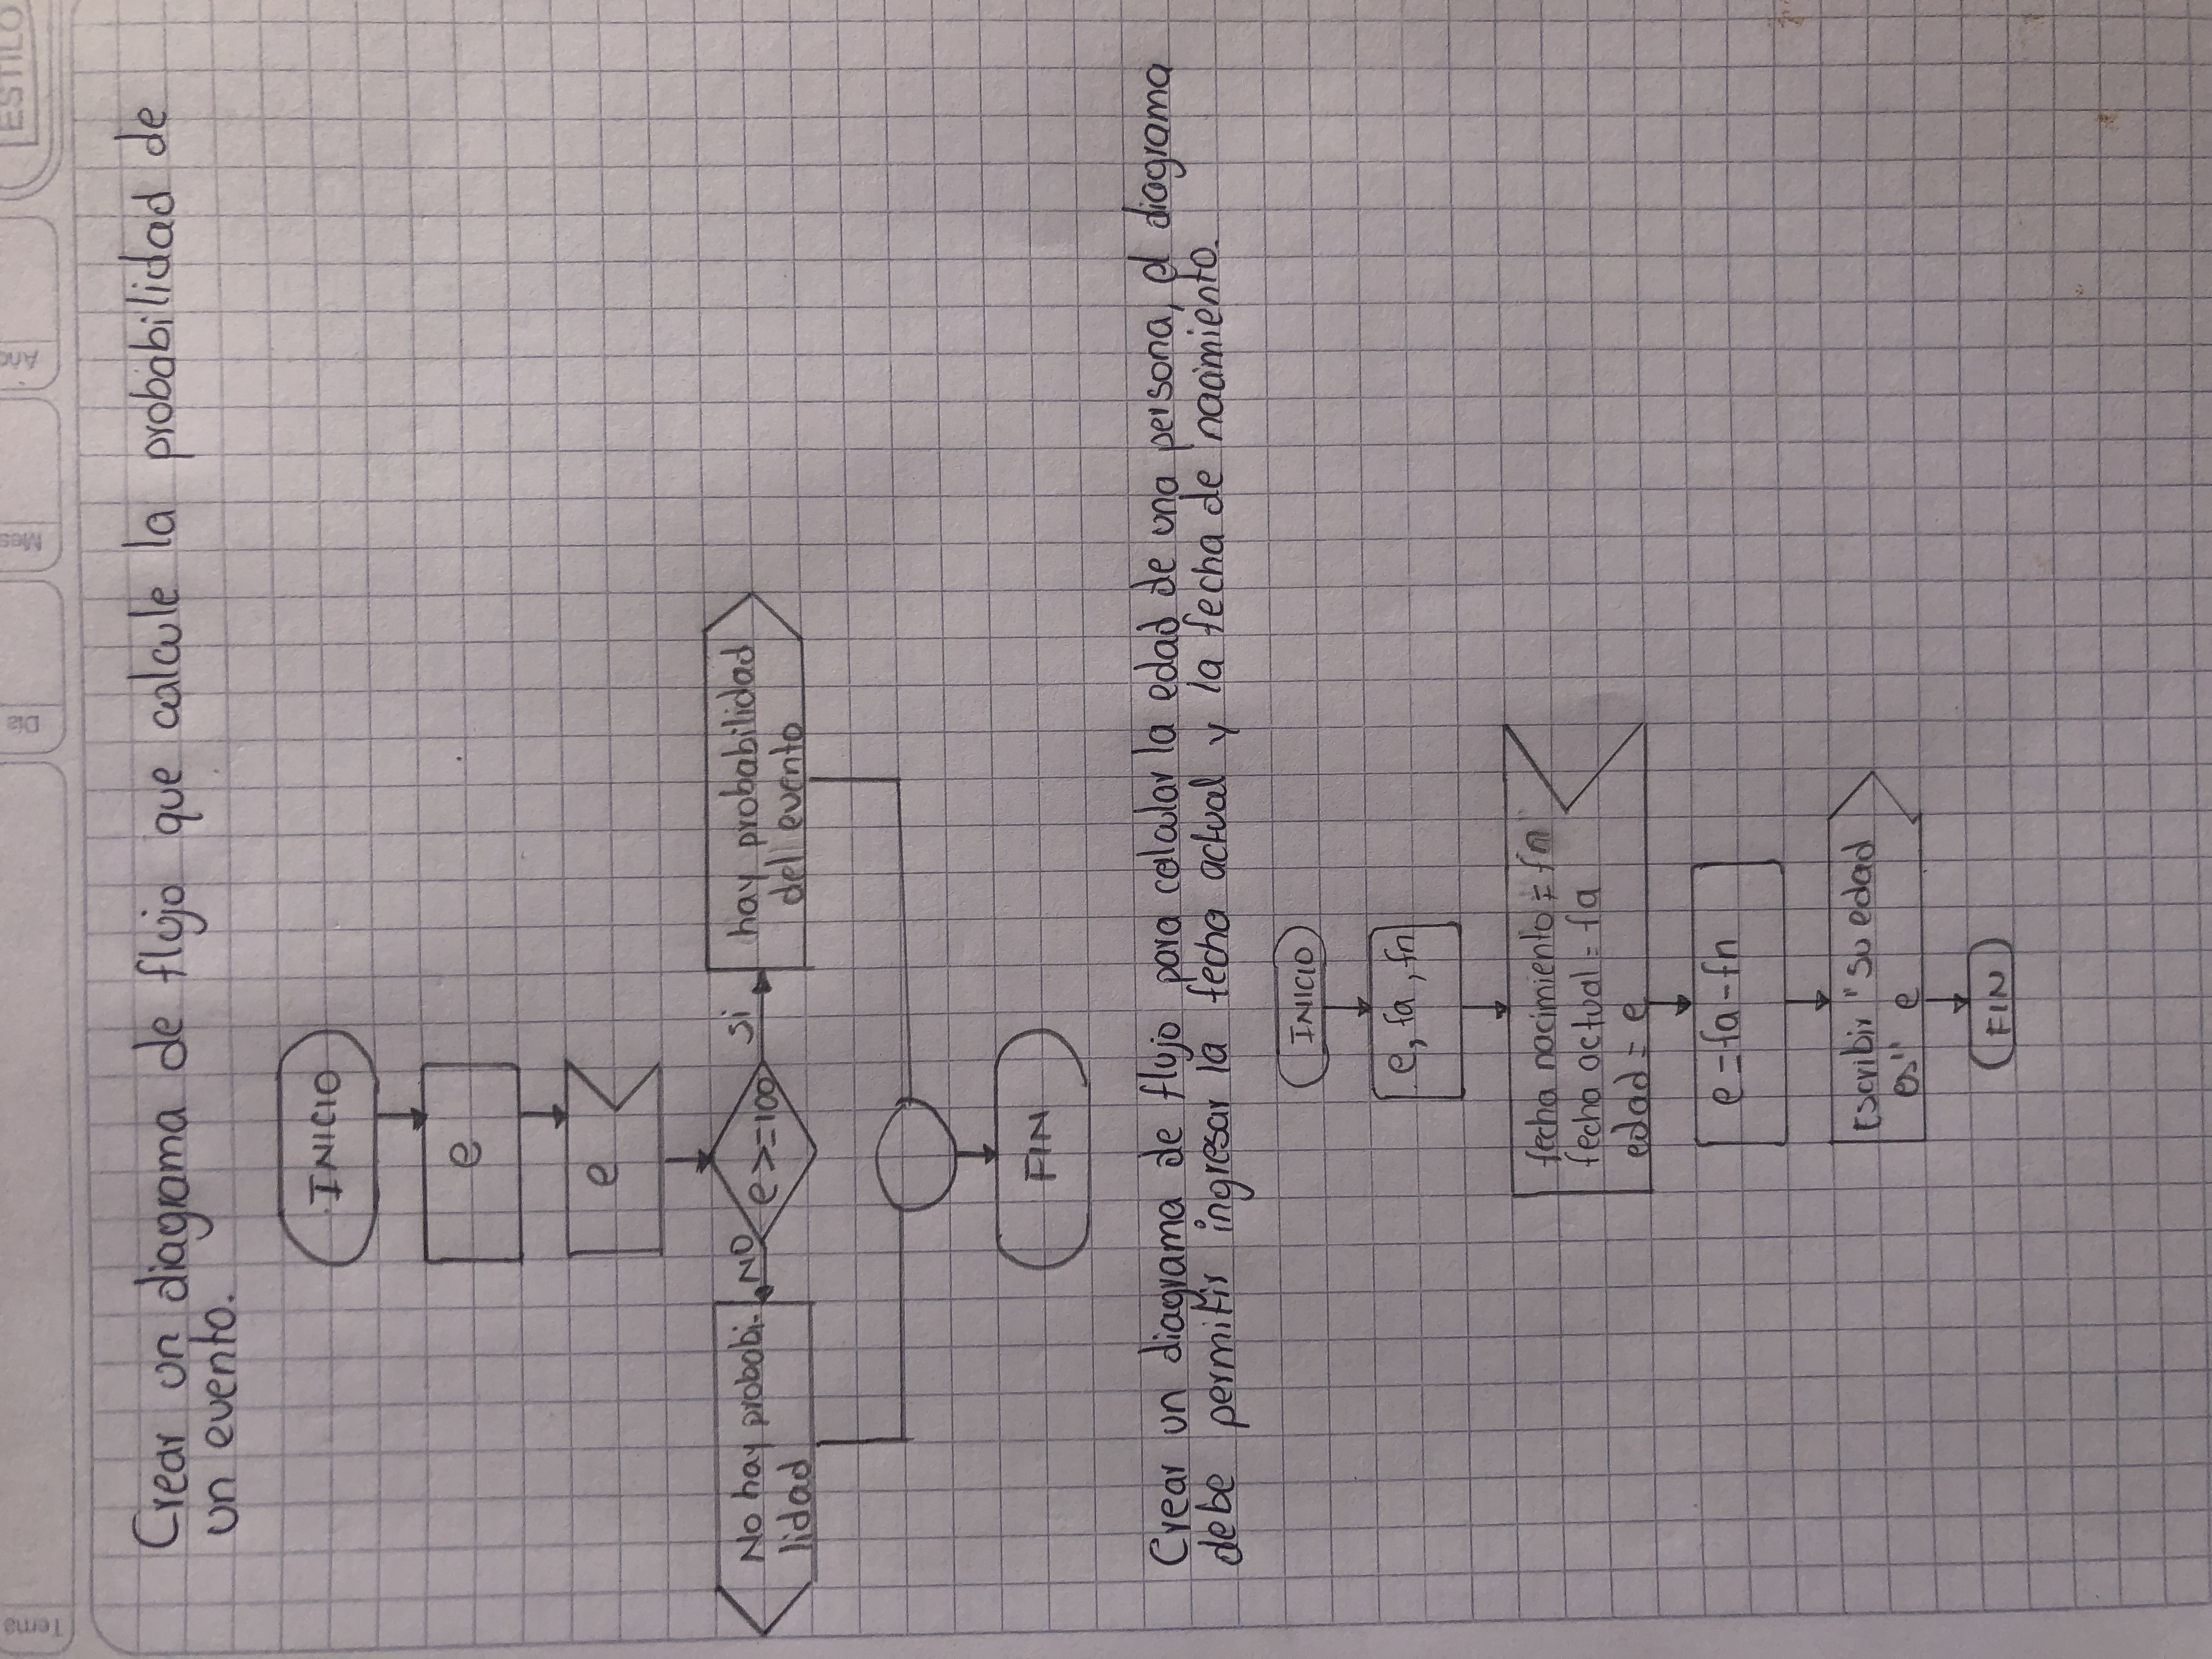 Tema Dia Mes Año ESTILO
Crear un diagrama de flujo que calcule la probabilidad de
un evento.
INICIO
e
e
No hay probabi-
lidad
NO
e >=100
si
hay probabilidad
del evento
FIN
Crear un diagrama de flujo para calcular la edad de una persona, el diagrama
debe permitir ingresar la fecha actual y la fecha de nacimiento.
INICIO
e, fa, fn
fecha nacimiento = fn
fecha actual = fa
edad = e
e = fa - fn
Escribir "su edad
es" e
FIN